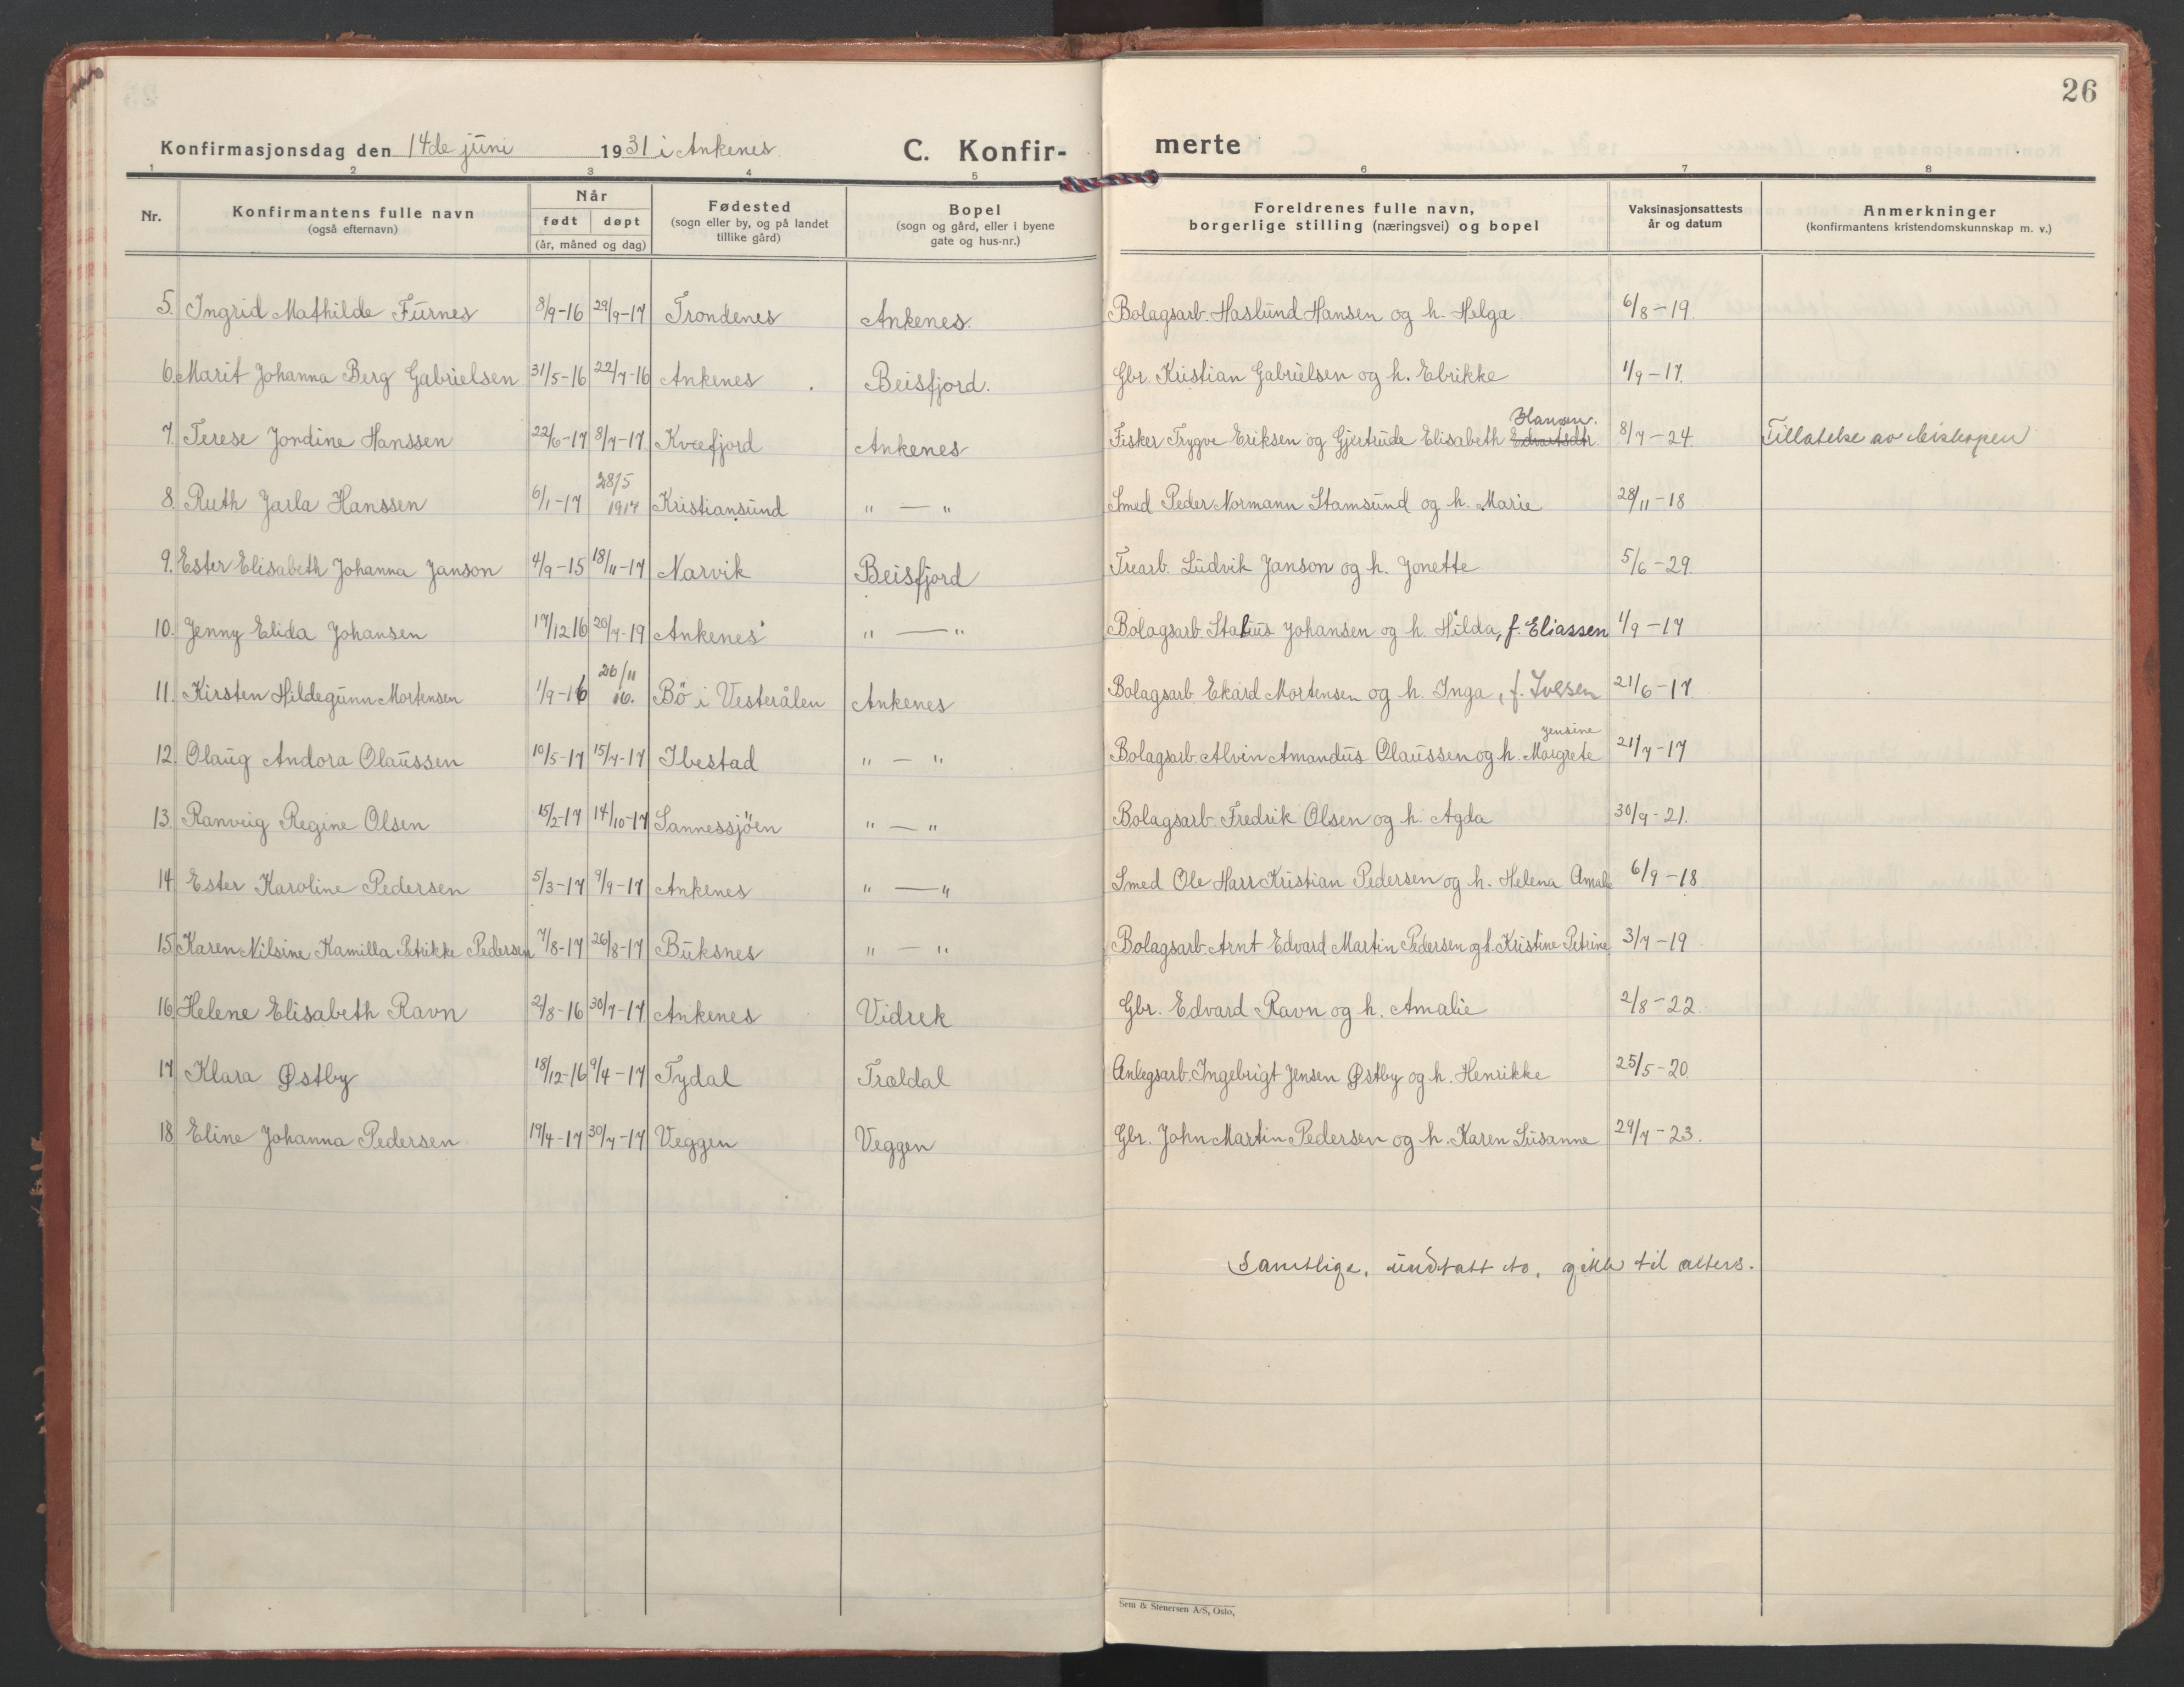 26
Konfirmasjonsdag den 14de juni 1931 i Ankenes. C. Konfirmerte
1 2 3 4 5 6 7 8
Nr. Konfirmantens fulle navn (også efternavn) Når født døpt (år, måned og dag) Fødested (sogn eller by, og på landet tillike gård) Bopel (sogn og gård, eller i byene gate og hus-nr.) Foreldrenes fulle navn, borgerlige stilling (næringsvei) og bopel Vaksinasjonsattests år og datum Anmerkninger (konfirmantens kristendomskunnskap m. v.)
5. Ingrid Mathilde Furnes 8/9-16 29/9-17 Trondenes Ankenes. Bolagsarb. Haslund Hansen og h. Helga 6/8-19.
6. Marit Johanna Berg Gabrielsen 31/5-16 22/7-16 Ankenes Beisfjord. Gbr. Kristian Gabrielsen og h. Ebrikke 1/9-17.
7. Terese Jordine Hanssen 22/6-17 8/7-17 Kvæfjord Ankenes Fisker Trygve Eriksen og Gjertrude Elisabeth Edvartsdtr. Hansen. 8/7-24. Tillatelse av biskopen
8. Ruth Jarla Hanssen 6/1-17 28/5 1917 Kristiansund " — " Smed Peder Normann Stamsund og h. Marie 28/11-18
9. Ester Elisabeth Johanna Janson 4/9-15 18/11-17 Narvik Beisfjord Trearb. Ludvik Janson og h. Jonette 5/6-29.
10. Jenny Elida Johansen 17/12 16 20/7-19 Ankenes " — " Bolagsarb. Stalius Johansen og h. Hilda, f. Eliassen 1/9-17
11. Kirsten Hildegunn Mortensen 1/9-16 26/11 16. Bö i Vesterålen Ankenes Bolagsarb. Ekård Mortensen og h. Inga, f. Ivesen 21/6-17.
12. Olaug Andora Olaussen 10/5-17 15/7-17 Ibestad " — " Bolagsarb. Alvin Amandus Olaussen og h. Jensine Margrete 21/7-17
13. Ranveig Regine Olsen 15/2-17 14/10-17 Sannessjöen " — " Bolagsarb. Fredrik Olsen og h. Agda 30/9-21.
14. Ester Karoline Pedersen 5/3-17 9/9-17 Ankenes " — " Smed Ole Harr Kristian Pedersen og h. Helena Amalie 6/9-18
15. Karen Nilsine Kamilla Petrikke Pedersen 7/8-17 26/8-17 Buksnes " — " Bolagsarb. Arnt Edvard Martin Pedersen og h. Kristine Petrine 3/7-19
16. Helene Elisabeth Ravn 2/8-16 30/7-17 Ankenes Vidrek Gbr. Edvard Ravn og h. Amalie 2/8-22.
17. Klara Østby 18/12-16 9/4-17 Tydal Traldal Anlegsarb. Ingebrigt Jensen Østby og h. Henrikke 25/5-20.
18. Eline Johanna Pedersen 19/4-17 30/7-17 Veggen Veggen Gbr. John Martin Pedersen og h. Karen Susanne 29/7-23.
Samtlige, undtatt to, gikk til alters.
Sem & Stenersen A/S, Oslo,